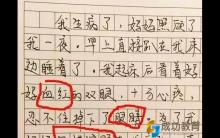 我生病了，妈妈照顾了
我一夜，早上直接趴在我床
边睡着了，我起床后看着妈
妈血红的双眼，十分心疼，
忍不住掉下了眼睛，为了我
成功教育